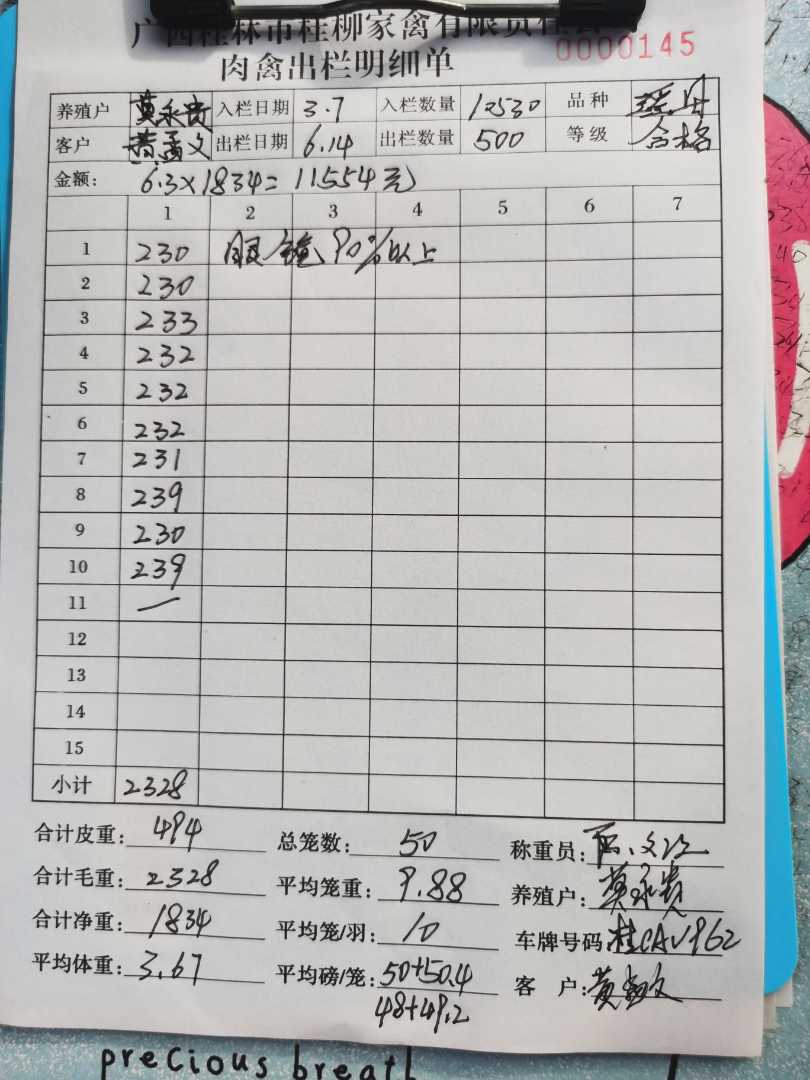 广西桂林市桂柳家禽有限责任公司
0000145
肉禽出栏明细单
养殖户 莫永贵 入栏日期 3.7 入栏数量 10530 品种
客户 黄孟文 出栏日期 6.14 出栏数量 500 等级 合格
金额: 6.3×1834=11554元
1 2 3 4 5 6 7
1 230 眼镜90%以上
2 230
3 233
4 232
5 232
6 232
7 231
8 239
9 230
10 239
11 —
12
13
14
15
小计 2328
合计皮重: 494 总笼数: 50 称重员:
合计毛重: 2328 平均笼重: 9.88 养殖户: 莫永贵
合计净重: 1834 平均笼/羽: 10 车牌号码: 桂CAV962
平均体重: 3.67 平均磅/笼: 50+50.4 客 户: 黄孟文
48+49.2
precious breath